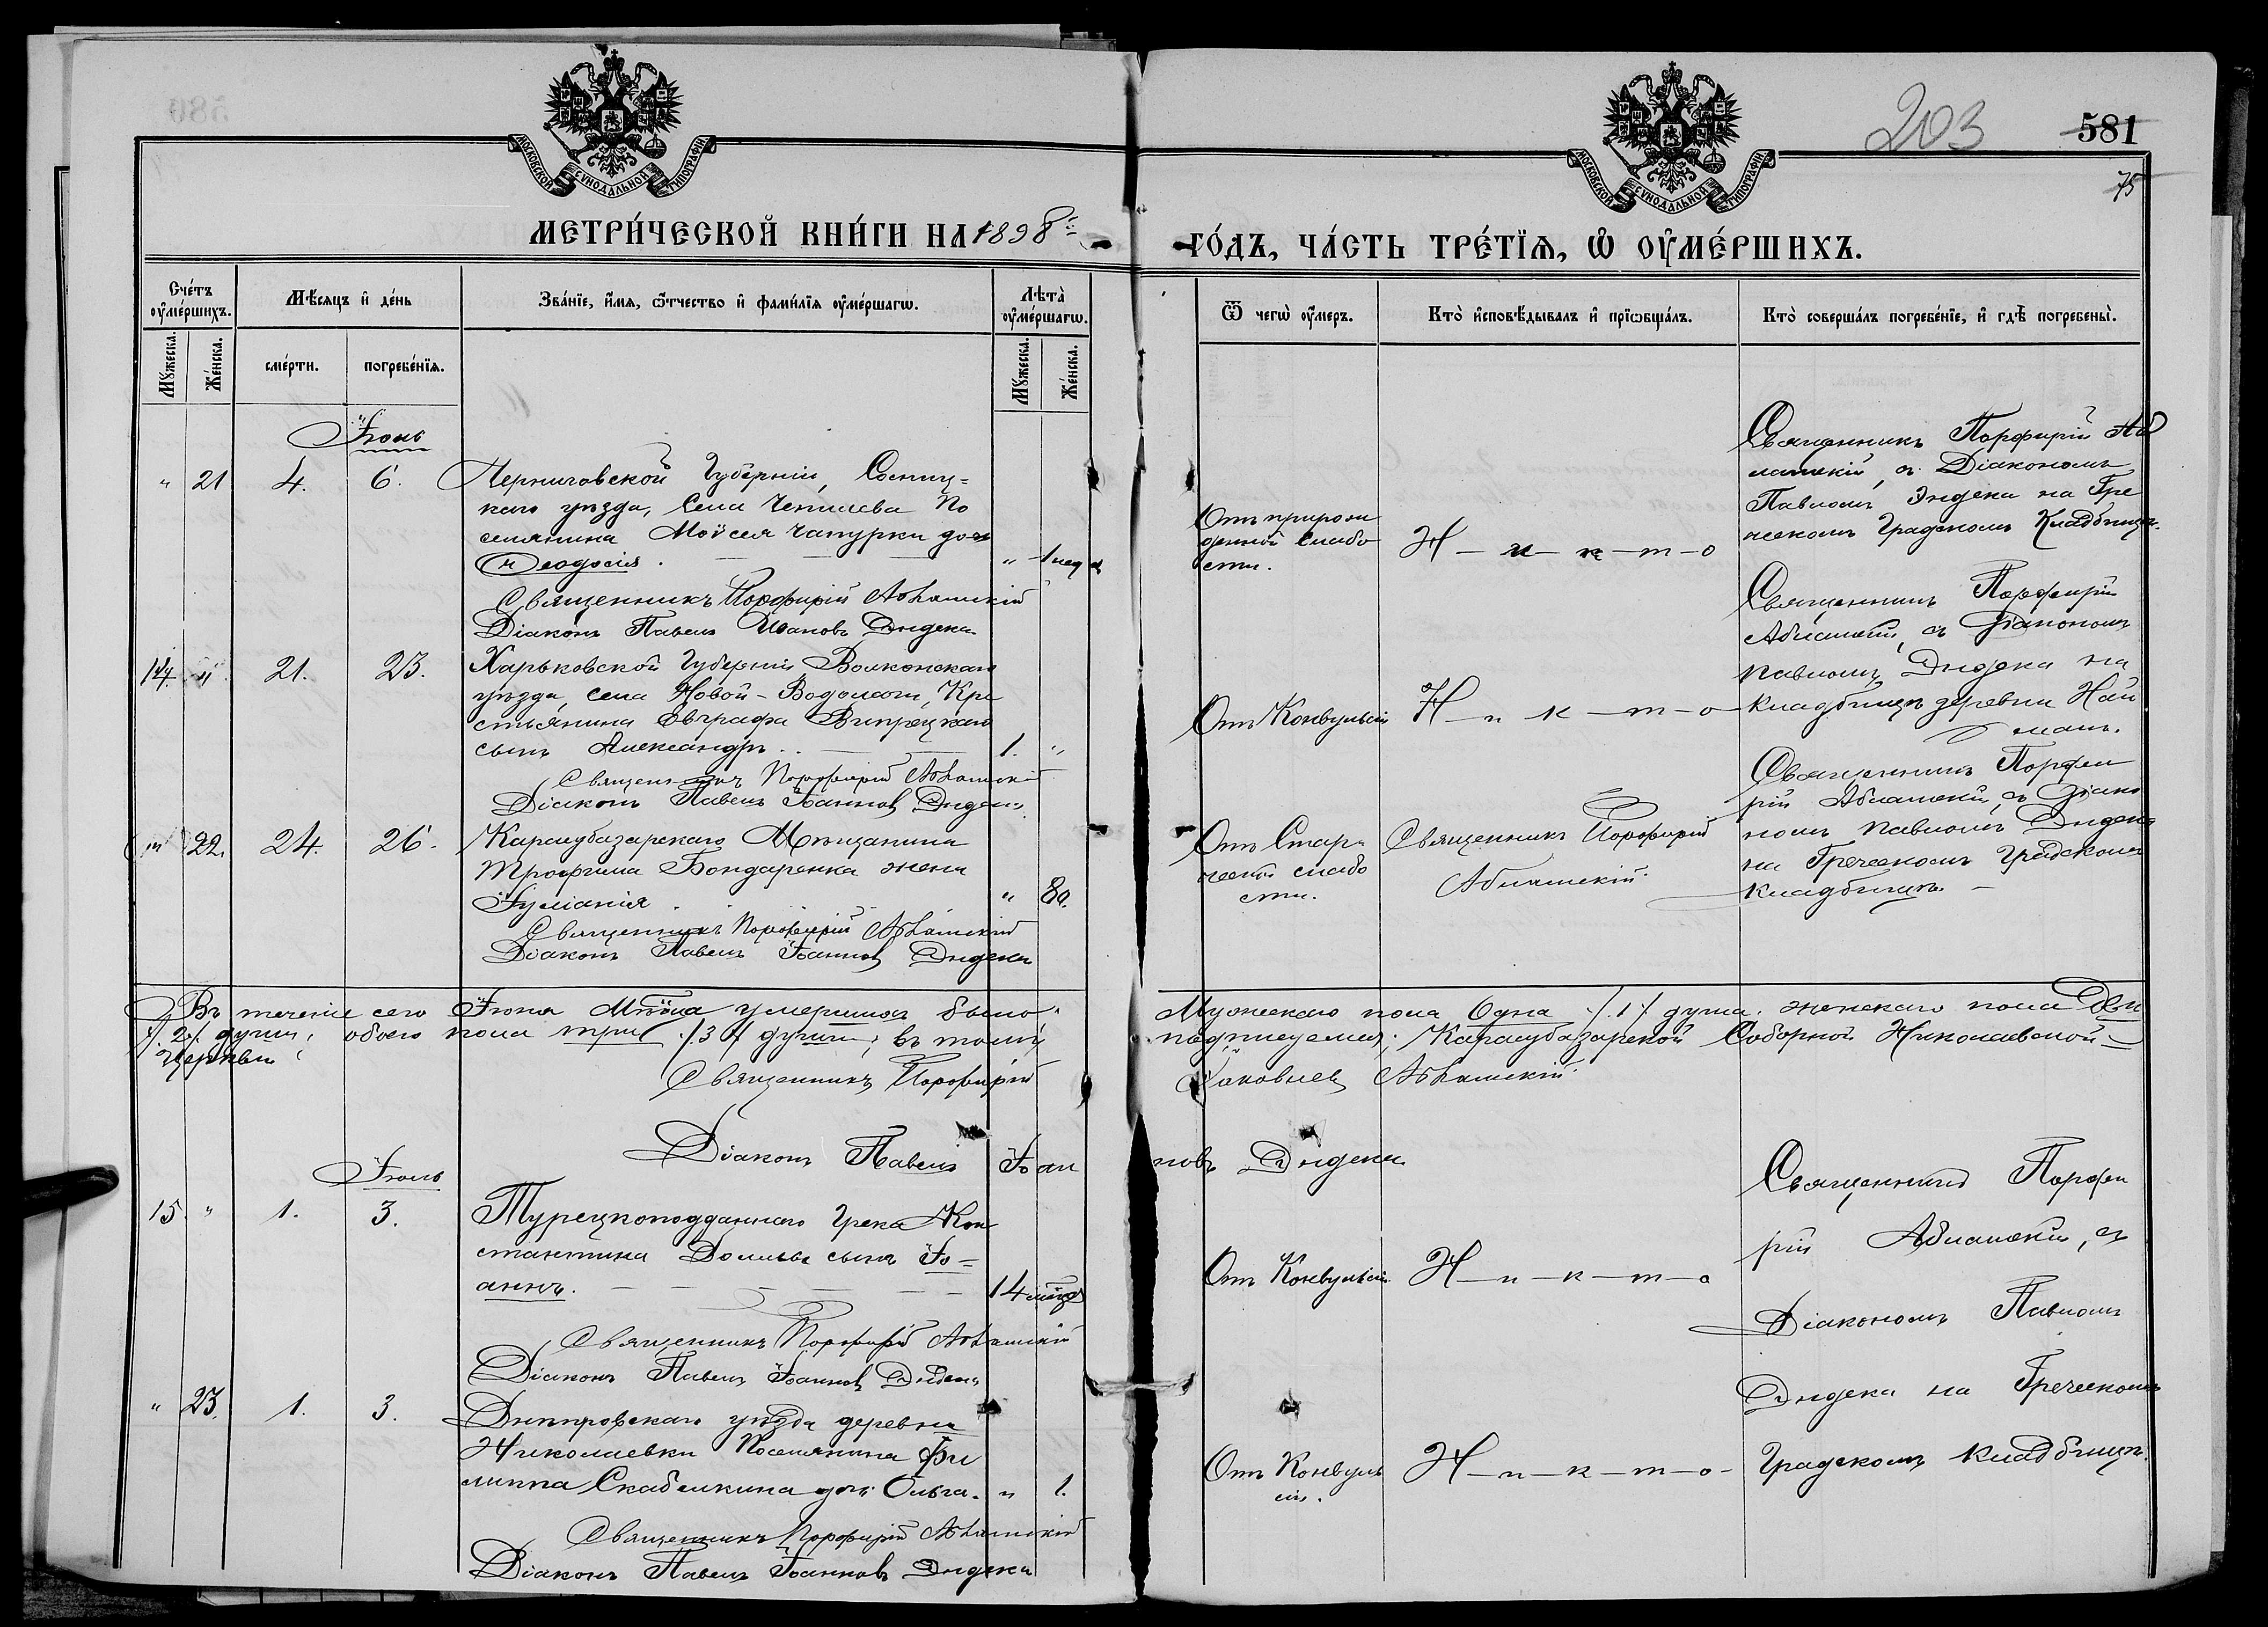 203
581
75
МОСКОВСКОЙ СѴНОДАЛЬНОЙ ТИПОГРАФІИ
МОСКОВСКОЙ СѴНОДАЛЬНОЙ ТИПОГРАФІИ
МЕТРИ́ЧЕСКОЙ КНИ́ГИ НА 1898й
ГО́ДЪ, ЧА́СТЬ ТРЕ́ТІЯ, Ѡ ОУ҆МЕ́РШИХЪ.
Сче́тъ оу҆ме́ршихъ.
Мꙋ́жеска.
Же́нска.
Мѣ́сяцъ и҆ де́нь
сме́рти.
погребе́нїя.
Зва́нїе, и҆́мя, ѻ҆́тчество и҆ фами́лїя оу҆ме́ршагѡ.
Лѣта̀ оу҆ме́ршагѡ.
Мꙋ́жеска.
Же́нска.
Ѿ чегѡ̀ оу҆́меръ.
Кто̀ и҆сповѣ́дывалъ и҆ прїѡбща́лъ.
Кто̀ соверша́лъ погребе́нїе, и҆ гдѣ̀ погребены̀.
Іюнь
" 21 4. 6.
Черниговской Губерніи, Сосниц=
каго уѣзда, Села Чепилева По
селянина Моѵсея Чапурки дочь
Ѳеодосія.
" 1 нед
Священникъ Порфирій Аблашскій
Діаконъ Павелъ Іоановъ Эндека
Отъ природж
денной слабо
сти.
Н-и-к-т-о
Священникъ Порфирій Аб
лашскій, съ Діакономъ
Павломъ Эндека на Гре
ческомъ Градскомъ Кладбищѣ.
14. " 21. 23.
Харьковской Губерніи Волконскаго
уѣзда, села Новой-Водолаги, Кре
стьянина Евграфа
сынъ Александръ..
1. "
Священникъ Порфирій Аблашскій
Діаконъ Павелъ Іоанновъ Эндека
Отъ Конвульсіи
Н-и-к-т-о
Священникъ Порфирій
Аблашскій, съ Діакономъ
Павломъ Эндека на
кладбищѣ деревни Най
манъ.
" 22. 24. 26.
Карасубазарскаго Мѣщанина
Трофима Бондаренка жена
Іуліанія
" 80.
Священникъ Порфирій Аблашскій
Діаконъ Павелъ Іоанновъ Эндека
Отъ Стар=
ческой слабо
сти.
Священникъ Порфирій
Аблашскій.
Священникъ Порфи
рій Аблашскій, съ Діако
номъ Павломъ Эндека
на Греческомъ Градскомъ
кладбищѣ. –
Въ теченіе сего Іюня Мѣсяца умершихъ было
Мужескаго пола Одна /.1./ душа. женскаго пола Двѣ
/.2./ души; обоего пола три /.3./ души; въ томъ
подписуемся; Карасубазарской Соборной Николаевской
Церкви
Священникъ Порфирій
Іаковлевъ Аблашскій.
Діаконъ Павелъ Іоан
новъ Эндека
Іюль
15. " 1. 3.
Турецкоподданнаго Грека Кон
стантина сынъ Іо=
аннъ.
14 мѣся
Священникъ Порфирій Аблашскій
Діаконъ Павелъ Іоанновъ Эндека
Отъ Конвульсіи
Н-и-к-т-о
Священникъ Порфи
рій Аблашскій, съ
Діакономъ Павломъ
Эндека на Греческомъ
Градскомъ Кладбищѣ.
" 23. 1. 3.
Днѣпровскаго уѣзда деревни
Николаевки Поселянина Фи
липпа Скабелкина дочь Ольга.
" 1.
Священникъ Порфирій Аблашскій
Діаконъ Павелъ Іоанновъ Эндека
Отъ Конвуль
сіи.
Н-и-к-т-о-